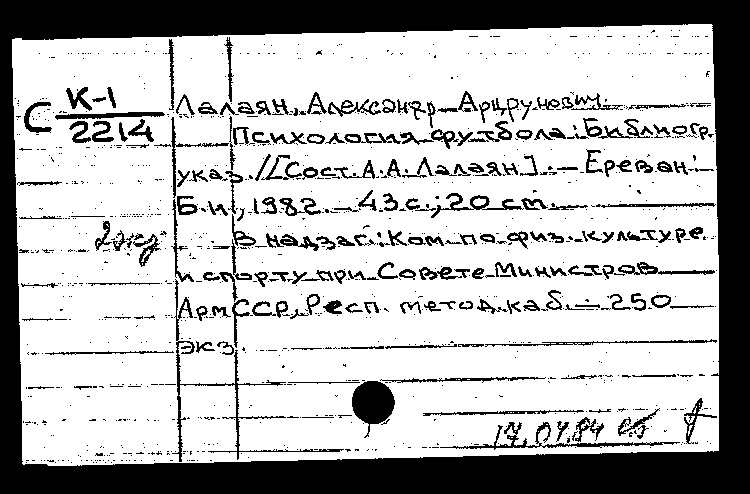 С К-1
2214
Лалаян, Александр Арцрунович.
Психология футбола: Библиогр.
указ. / [Сост. А.А. Лалаян]. — Ереван:
Б.и., 1982. — 43 с.; 20 cm.
2 экз
В надзаг.: Ком. по физ. культуре
и спорту при Совете Министров
АрмССР, Респ. метод. каб. — 250
экз.
17.04.84